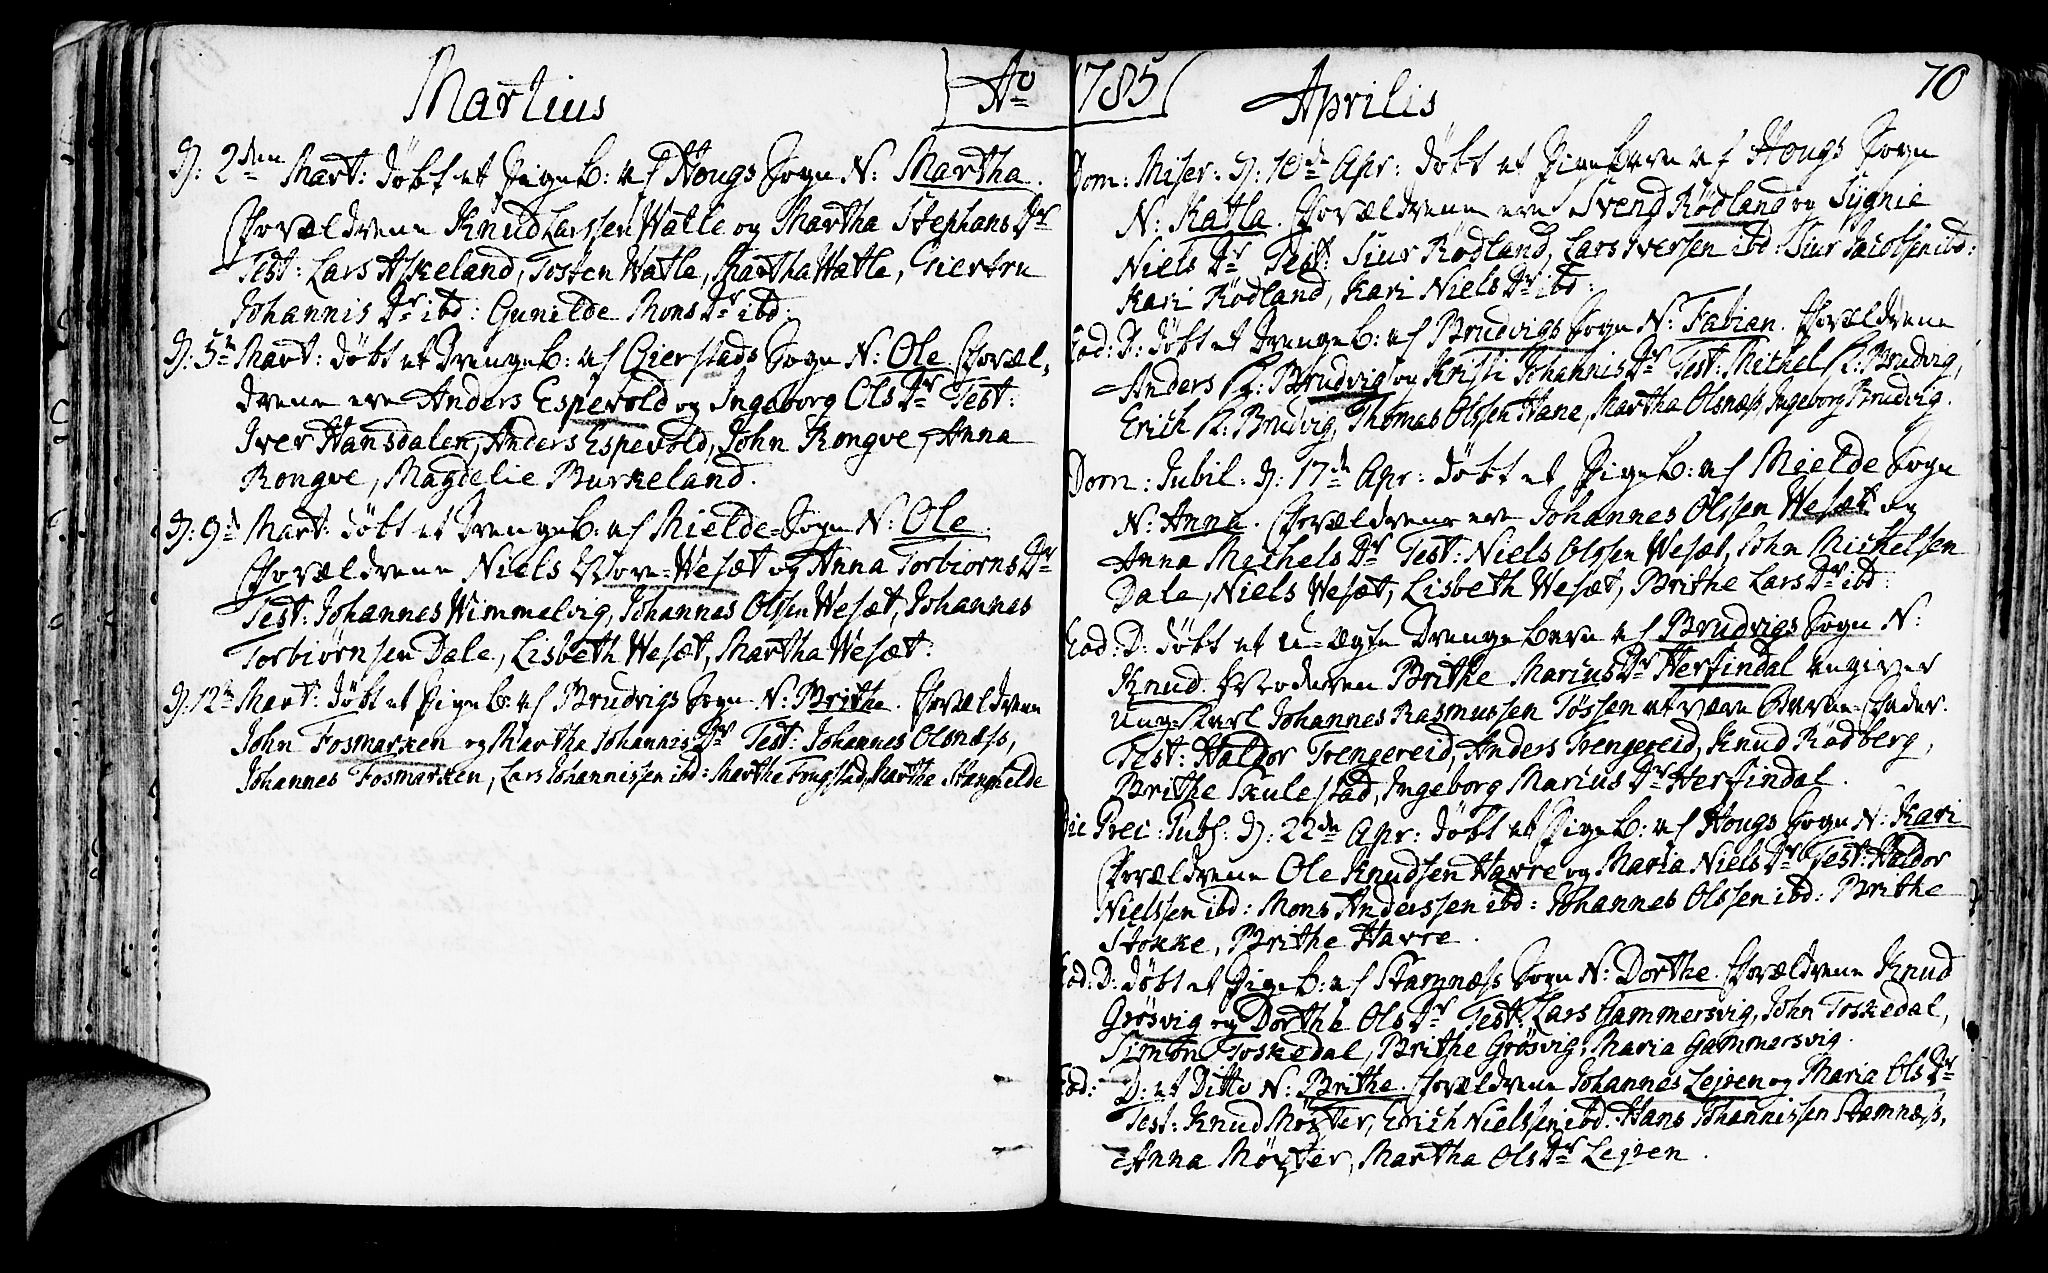 Martius
Ao 1785
D: 2den Mart: døbt et Pigeb: af Hougs Sogn N: Martha.
Forældrene Knud Larssen Watle og Martha Stephans Dr
Test: Lars Askeland, Tosten Watle, Martha Watle, Giertru
Johannis Dr ibd: Gunilde Mons Dr ibd:
D: 5te Mart: døbt et Drengeb: af Gierstads Sogn N: Ole Foræl-
drene ere Anders Espevold og Ingeborg Ols Dr Test:
Iver Hansdalen, Anders Espevold, John Rongve, Anna
Rongve, Magdelie Burkeland.
D: 9de Mart: døbt et Drengeb: af Mielde-Sogn N: Ole.
Forældrene Niels Wesæt og Anna Torbiorns Dr
Test: Johannes Wimmelvig, Johannes Olssen Wesæt, Johannes
Torbiørnsen Dale, Lisbeth Wesæt, Martha Wesæt:
D: 12te Mart: døbt et Pigeb: af Brudvigs Sogn N: Brithe. Forældrene
John Fosmarken og Martha Johannis Dr Test: Johannes Olsnæss,
Johannes Fosmarken, Lars Johannissen ibd: Marthe Marthe Stanghelde
Aprilis
70
Dom: Miser: D: 10de Apr: døbt et Pigebarn af Hougs Sogn
N: Katla. Forældrene ere Svend Rødland og Sygnie
Niels Dr Test: Siur Rødland, Lars Iversen ibd: Siur Jacobsen ibd:
Kari Rødland, Kari Niels Dr ibd:
Eod: D: døbt et Drengeb: af Brudvigs Sogn N: Fabian. Forældrene
Anders R: Brudvig og Kristi Johannis Dr Test: Michel R: Brudvig,
Erich R: Brudvig, Thomas Olssen Hane, Martha Olsnæss, Ingeborg Brudvig.
Dom: Jubil: D: 17de Apr: døbt et Pigeb: af Mielde Sogn
N: Anna. Forældrene ere Johannes Olssen Wesæt og
Anna Michels Dr Test: Niels Olssen Wesæt, John Michelsen
Dale, Niels Wesæt, Lisbeth Wesæt, Brithe Lars Dr ibd:
Eod: D: døbt et u-ægte Drengebarn af Brudvigs Sogn N:
Knud. Moderen Brithe Marius Dr Herfindal angiver
Ungkarl Johannes Rasmussen Tøssen at være Barne-Fader.
Test: Haldor Trengereid, Anders Trengereid, Knud Rødberg,
Brithe Skulestad, Ingeborg Marius Dr Herfindal.
Die Prec: Publ: D: 22de Apr: døbt et Pigeb: af Hougs Sogn N: Kari
Forældrene Ole Knudsen Havre og Maria Niels Dr Test: Haldor
Nielssen ibd: Mons Anderssen ibd: Johannes Olssen ibd: Brithe
Stokke, Brithe Havre.
Eod: D: døbt et Pigeb: af Stamnæss Sogn N: Dorthe. Forældrene Knud
Grøsvig og Dorthe Ols Dr Test: Lars Gammersvig, John Toskedal,
Simon Toskedal, Brithe Grøsvig, Maria Gammersvig.
Eod: D: et Ditto N: Brithe. Forældrene Johannes Lejren og Maria Ols Dr
Test: Knud Møster, Erich Nielssen ibd: Hans Johannissen Stamnæss,
Anna Møster, Martha Ols Dr Lejren.